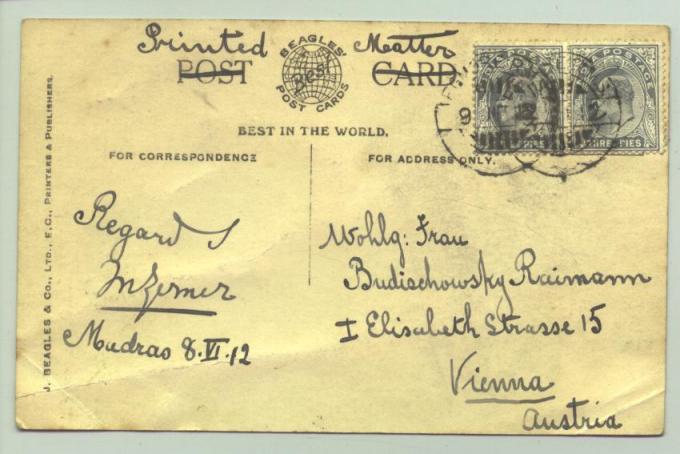 Printed Matter
POST CARD
BEAGLES'
Best
POST CARDS
BEST IN THE WORLD.
FOR CORRESPONDENCE
FOR ADDRESS ONLY.
J. BEAGLES & CO., LTD., E.C., PRINTERS & PUBLISHERS.
Regards
Madras 8.VI.12
Wohlg: Frau
Budischowsky Raimann
I Elisabeth Strasse 15
Vienna
Austria
POSTAGE
THREE PIES